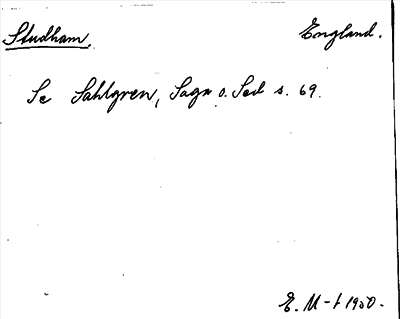 Studham. England.
Se Sahlgren, Sagn o. Sed s. 69.
E. M-t 1950.